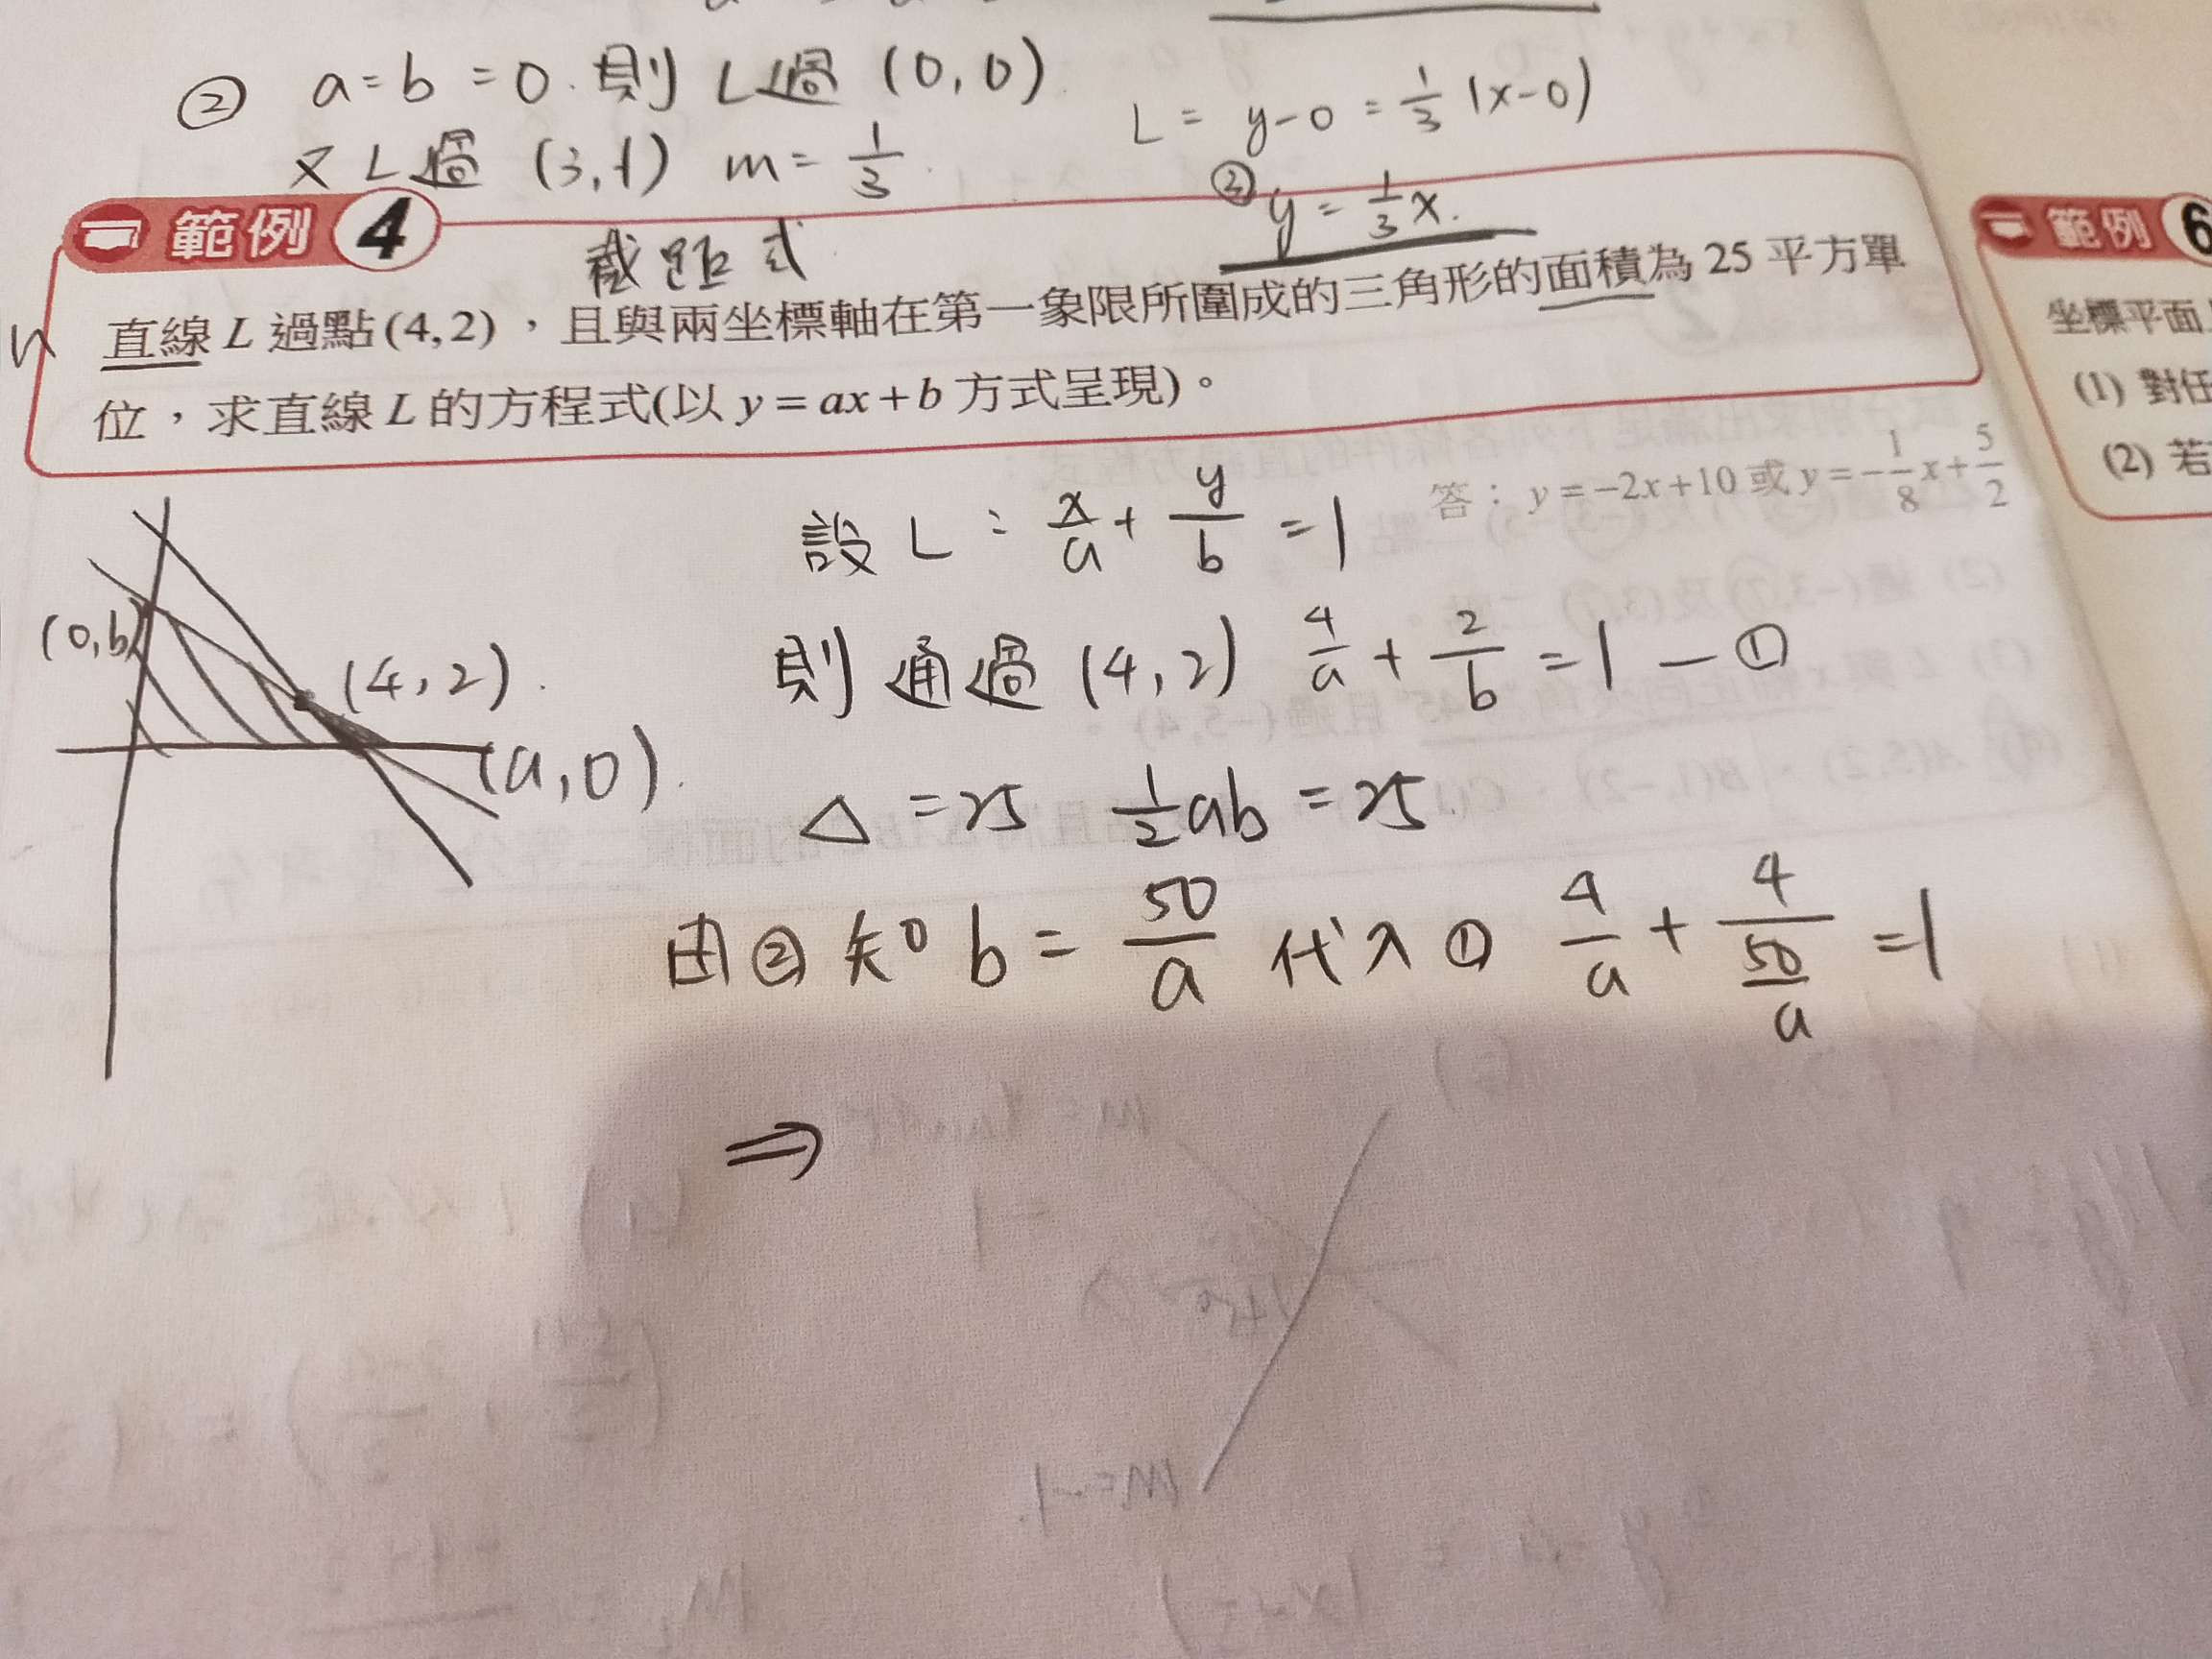 ② a=b=0. 則 L過 (0,0)
又 L過 (3,1) m=1/3
L = y-0 = 1/3 (x-0)
② y = 1/3 x.
範例 4
截距式
直線 L 過點(4,2),且與兩坐標軸在第一象限所圍成的三角形的面積為 25 平方單
位,求直線 L 的方程式(以 y = ax + b 方式呈現)。
答: y = -2x+10 或 y = -1/8 x + 5/2
(0,b)
(4,2).
(a,0).
設 L : x/a + y/b = 1
則 通過 (4,2) 4/a + 2/b = 1 — ①
△ = 25 1/2 ab = 25
由②知 b = 50/a 代入① 4/a + 4/(50/a) = 1
⇒
範例 6
坐標平面
(1) 對任
(2) 若